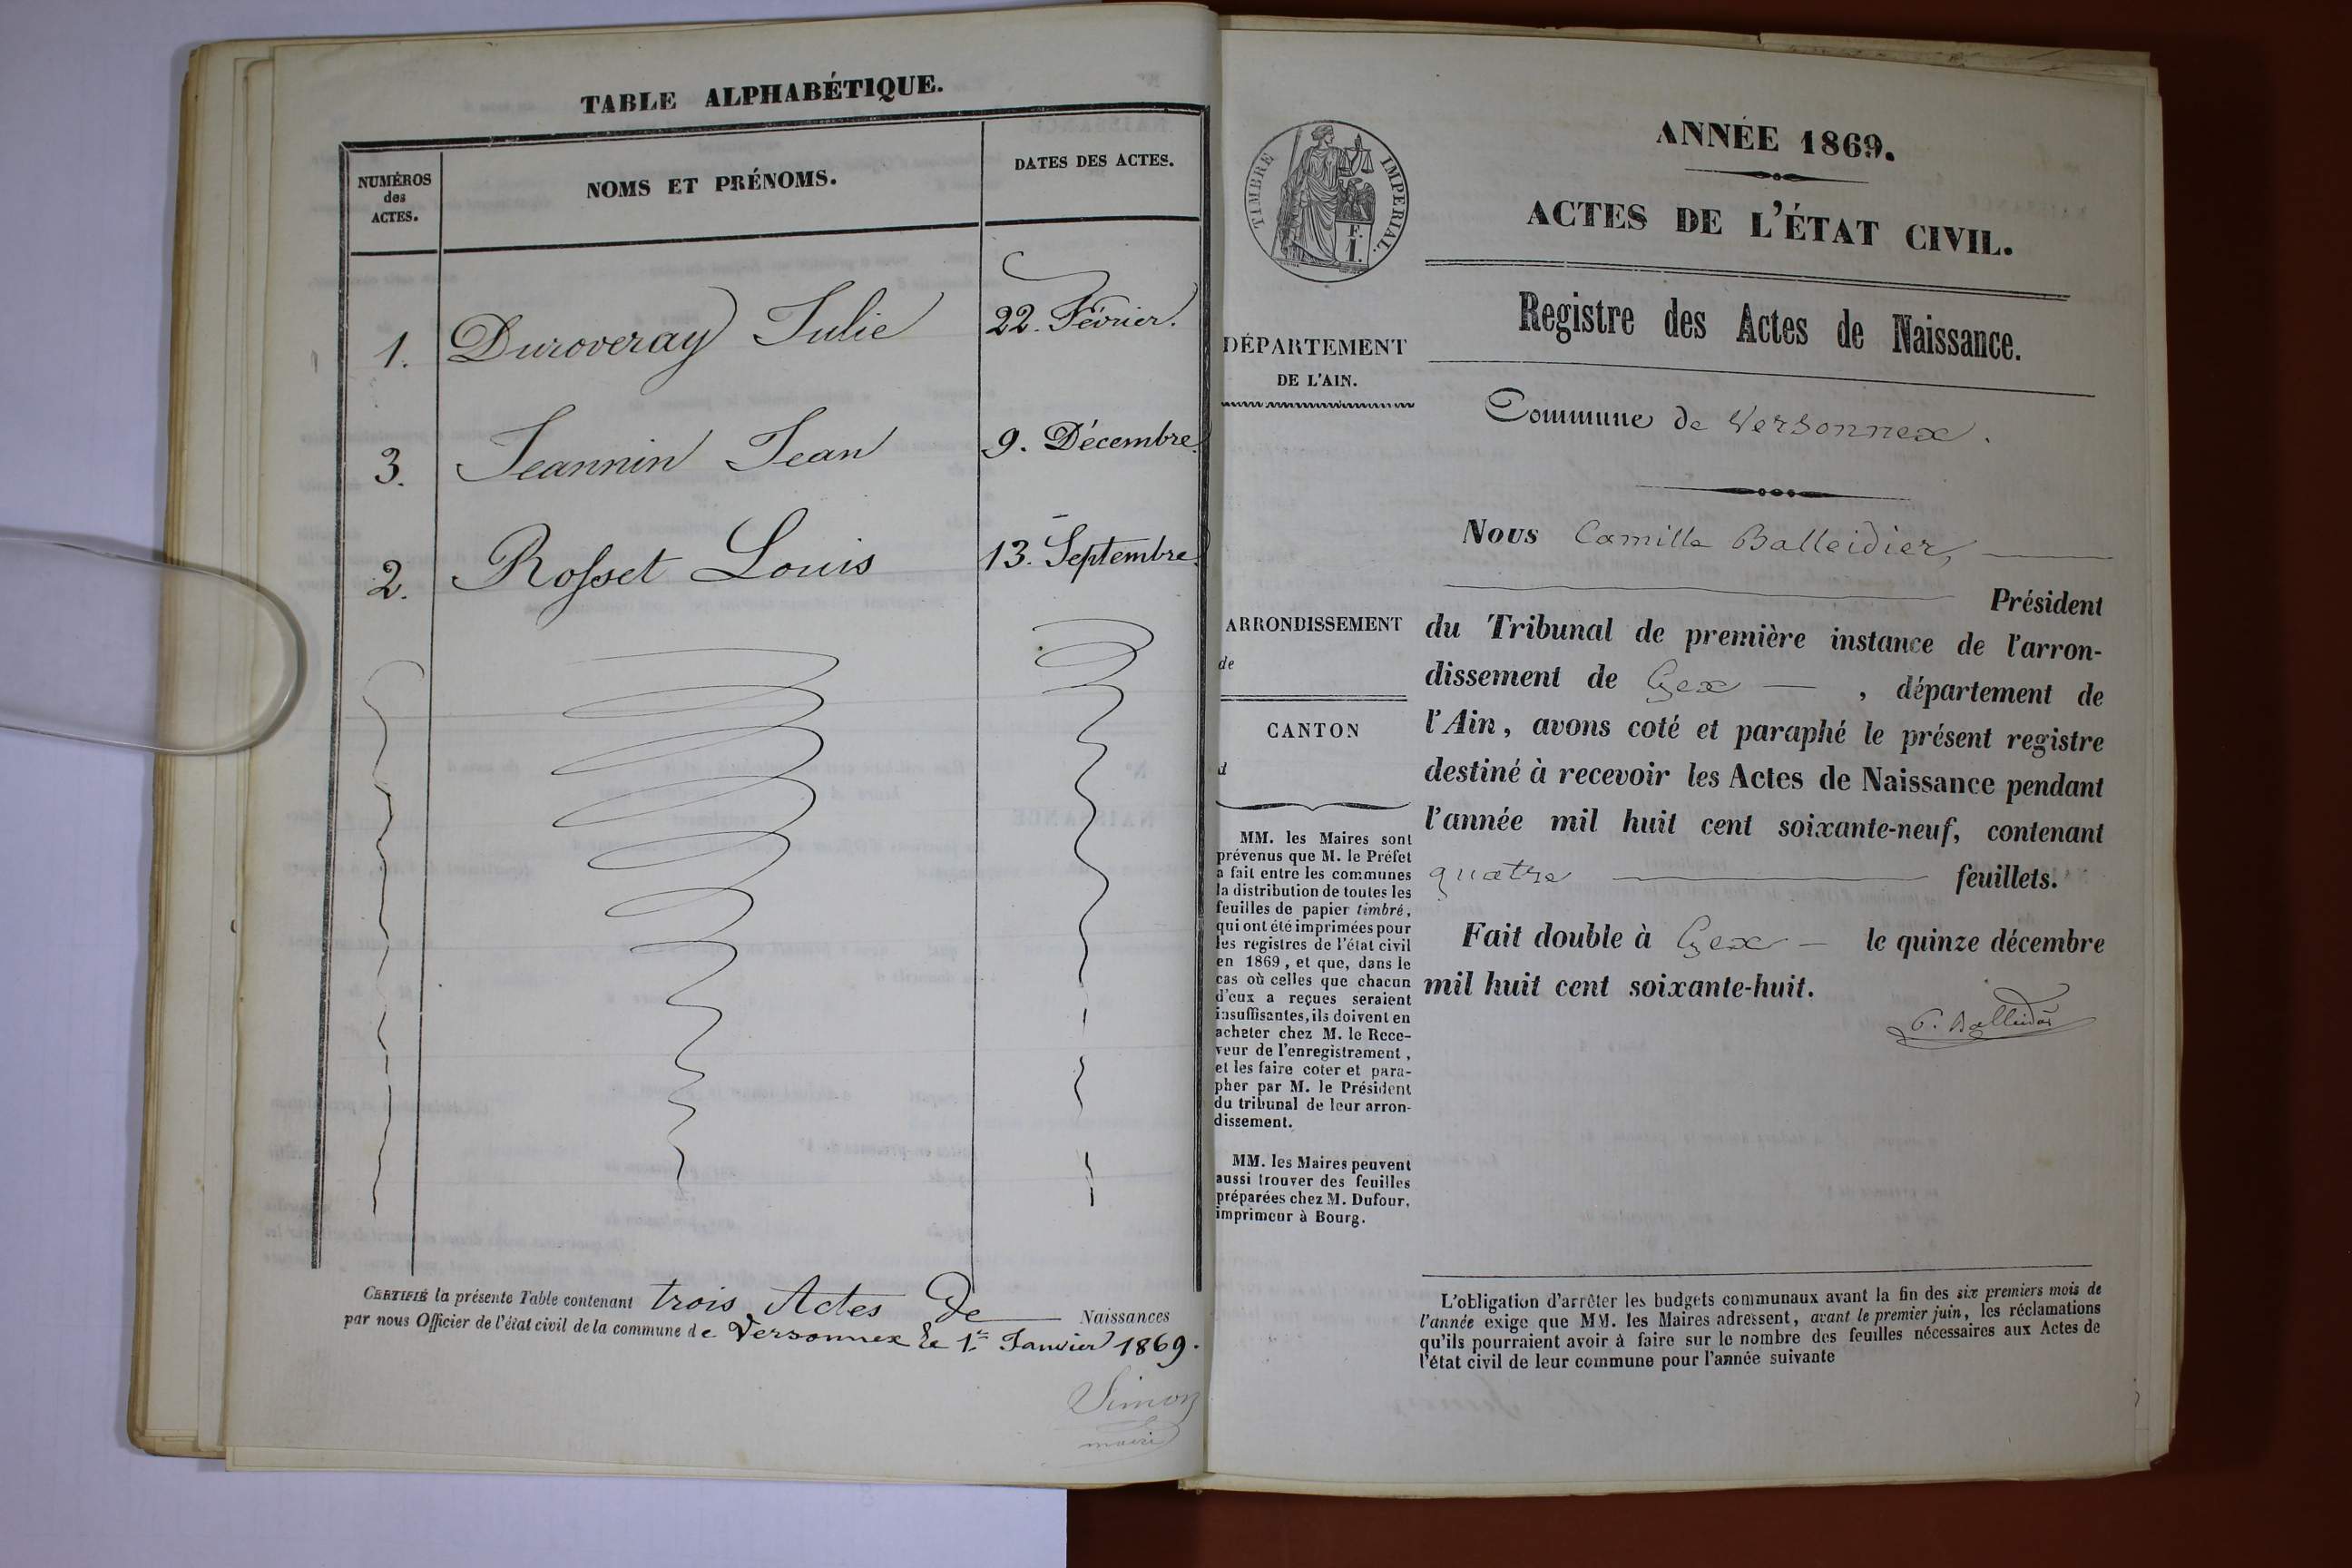 TABLE ALPHABÉTIQUE.
NUMÉROS
des
ACTES.
NOMS ET PRÉNOMS.
DATES DES ACTES.
1. Duroveray Julie 22. Février.
3. Jeannin Jean 9. Décembre.
2. Rosset Louis 13. Septembre.
CERTIFIÉ la présente Table contenant trois Actes De Naissances
par nous Officier de l'état civil de la commune de Versonnex le 1er Janvier 1869.
Simon
maire
TIMBRE IMPERIAL.
F.
1.
DÉPARTEMENT
DE L'AIN.
ARRONDISSEMENT
de
CANTON
d
MM. les Maires sont
prévenus que M. le Préfet
a fait entre les communes
la distribution de toutes les
feuilles de papier timbré,
qui ont été imprimées pour
les registres de l'état civil
en 1869, et que, dans le
cas où celles que chacun
d'eux a reçues seraient
insuffisantes, ils doivent en
acheter chez M. le Rece-
veur de l'enregistrement,
et les faire coter et para-
pher par M. le Président
du tribunal de leur arron-
dissement.
MM. les Maires peuvent
aussi trouver des feuilles
préparées chez M. Dufour,
imprimeur à Bourg.
ANNÉE 1869.
ACTES DE L'ÉTAT CIVIL.
Registre des Actes de Naissance.
Commune de Versonnex.
Nous Camille Balleidier,
Président
du Tribunal de première instance de l'arron-
dissement de Gex, département de
l'Ain, avons coté et paraphé le présent registre
destiné à recevoir les Actes de Naissance pendant
l'année mil huit cent soixante-neuf, contenant
quatre feuillets.
Fait double à Gex le quinze décembre
mil huit cent soixante-huit.
C. Balleidier
L'obligation d'arrêter les budgets communaux avant la fin des six premiers mois de
l'année exige que MM. les Maires adressent, avant le premier juin, les réclamations
qu'ils pourraient avoir à faire sur le nombre des feuilles nécessaires aux Actes de
l'état civil de leur commune pour l'année suivante